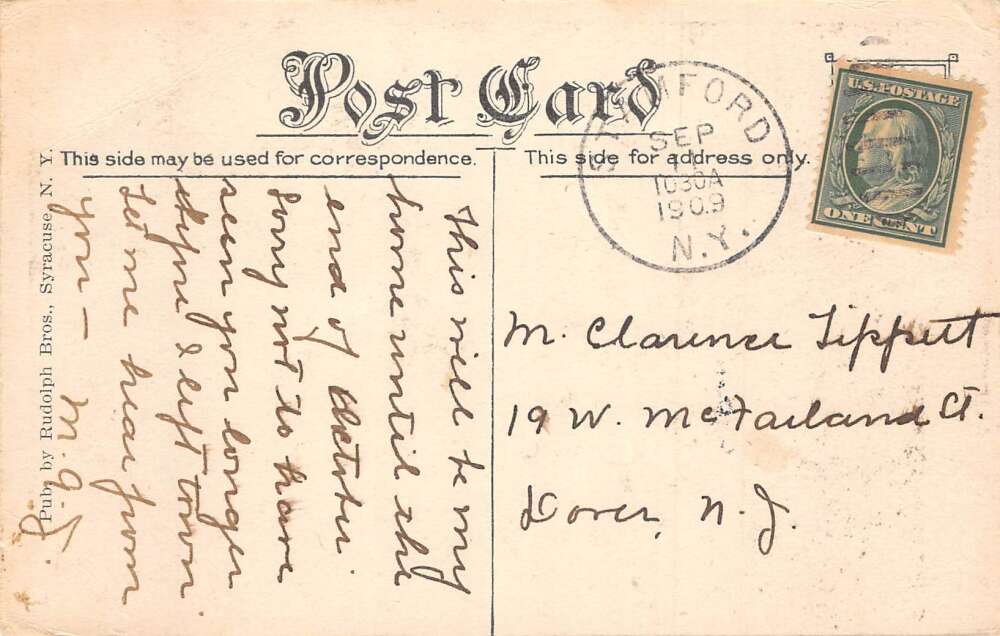 Post Card
This side may be used for correspondence.
This side for address only.
STAMFORD
SEP
11
1030A
1909
N.Y.
U.S. POSTAGE
ONE CENT
This will be my
home until the
end of October
Sorry not to have
seen you longer
before I left town
Let me hear from
you —
M. Clarence Tippett
19 W. McFarland St.
Dover, N.J.
Pub. by Rudolph Bros., Syracuse, N. Y.